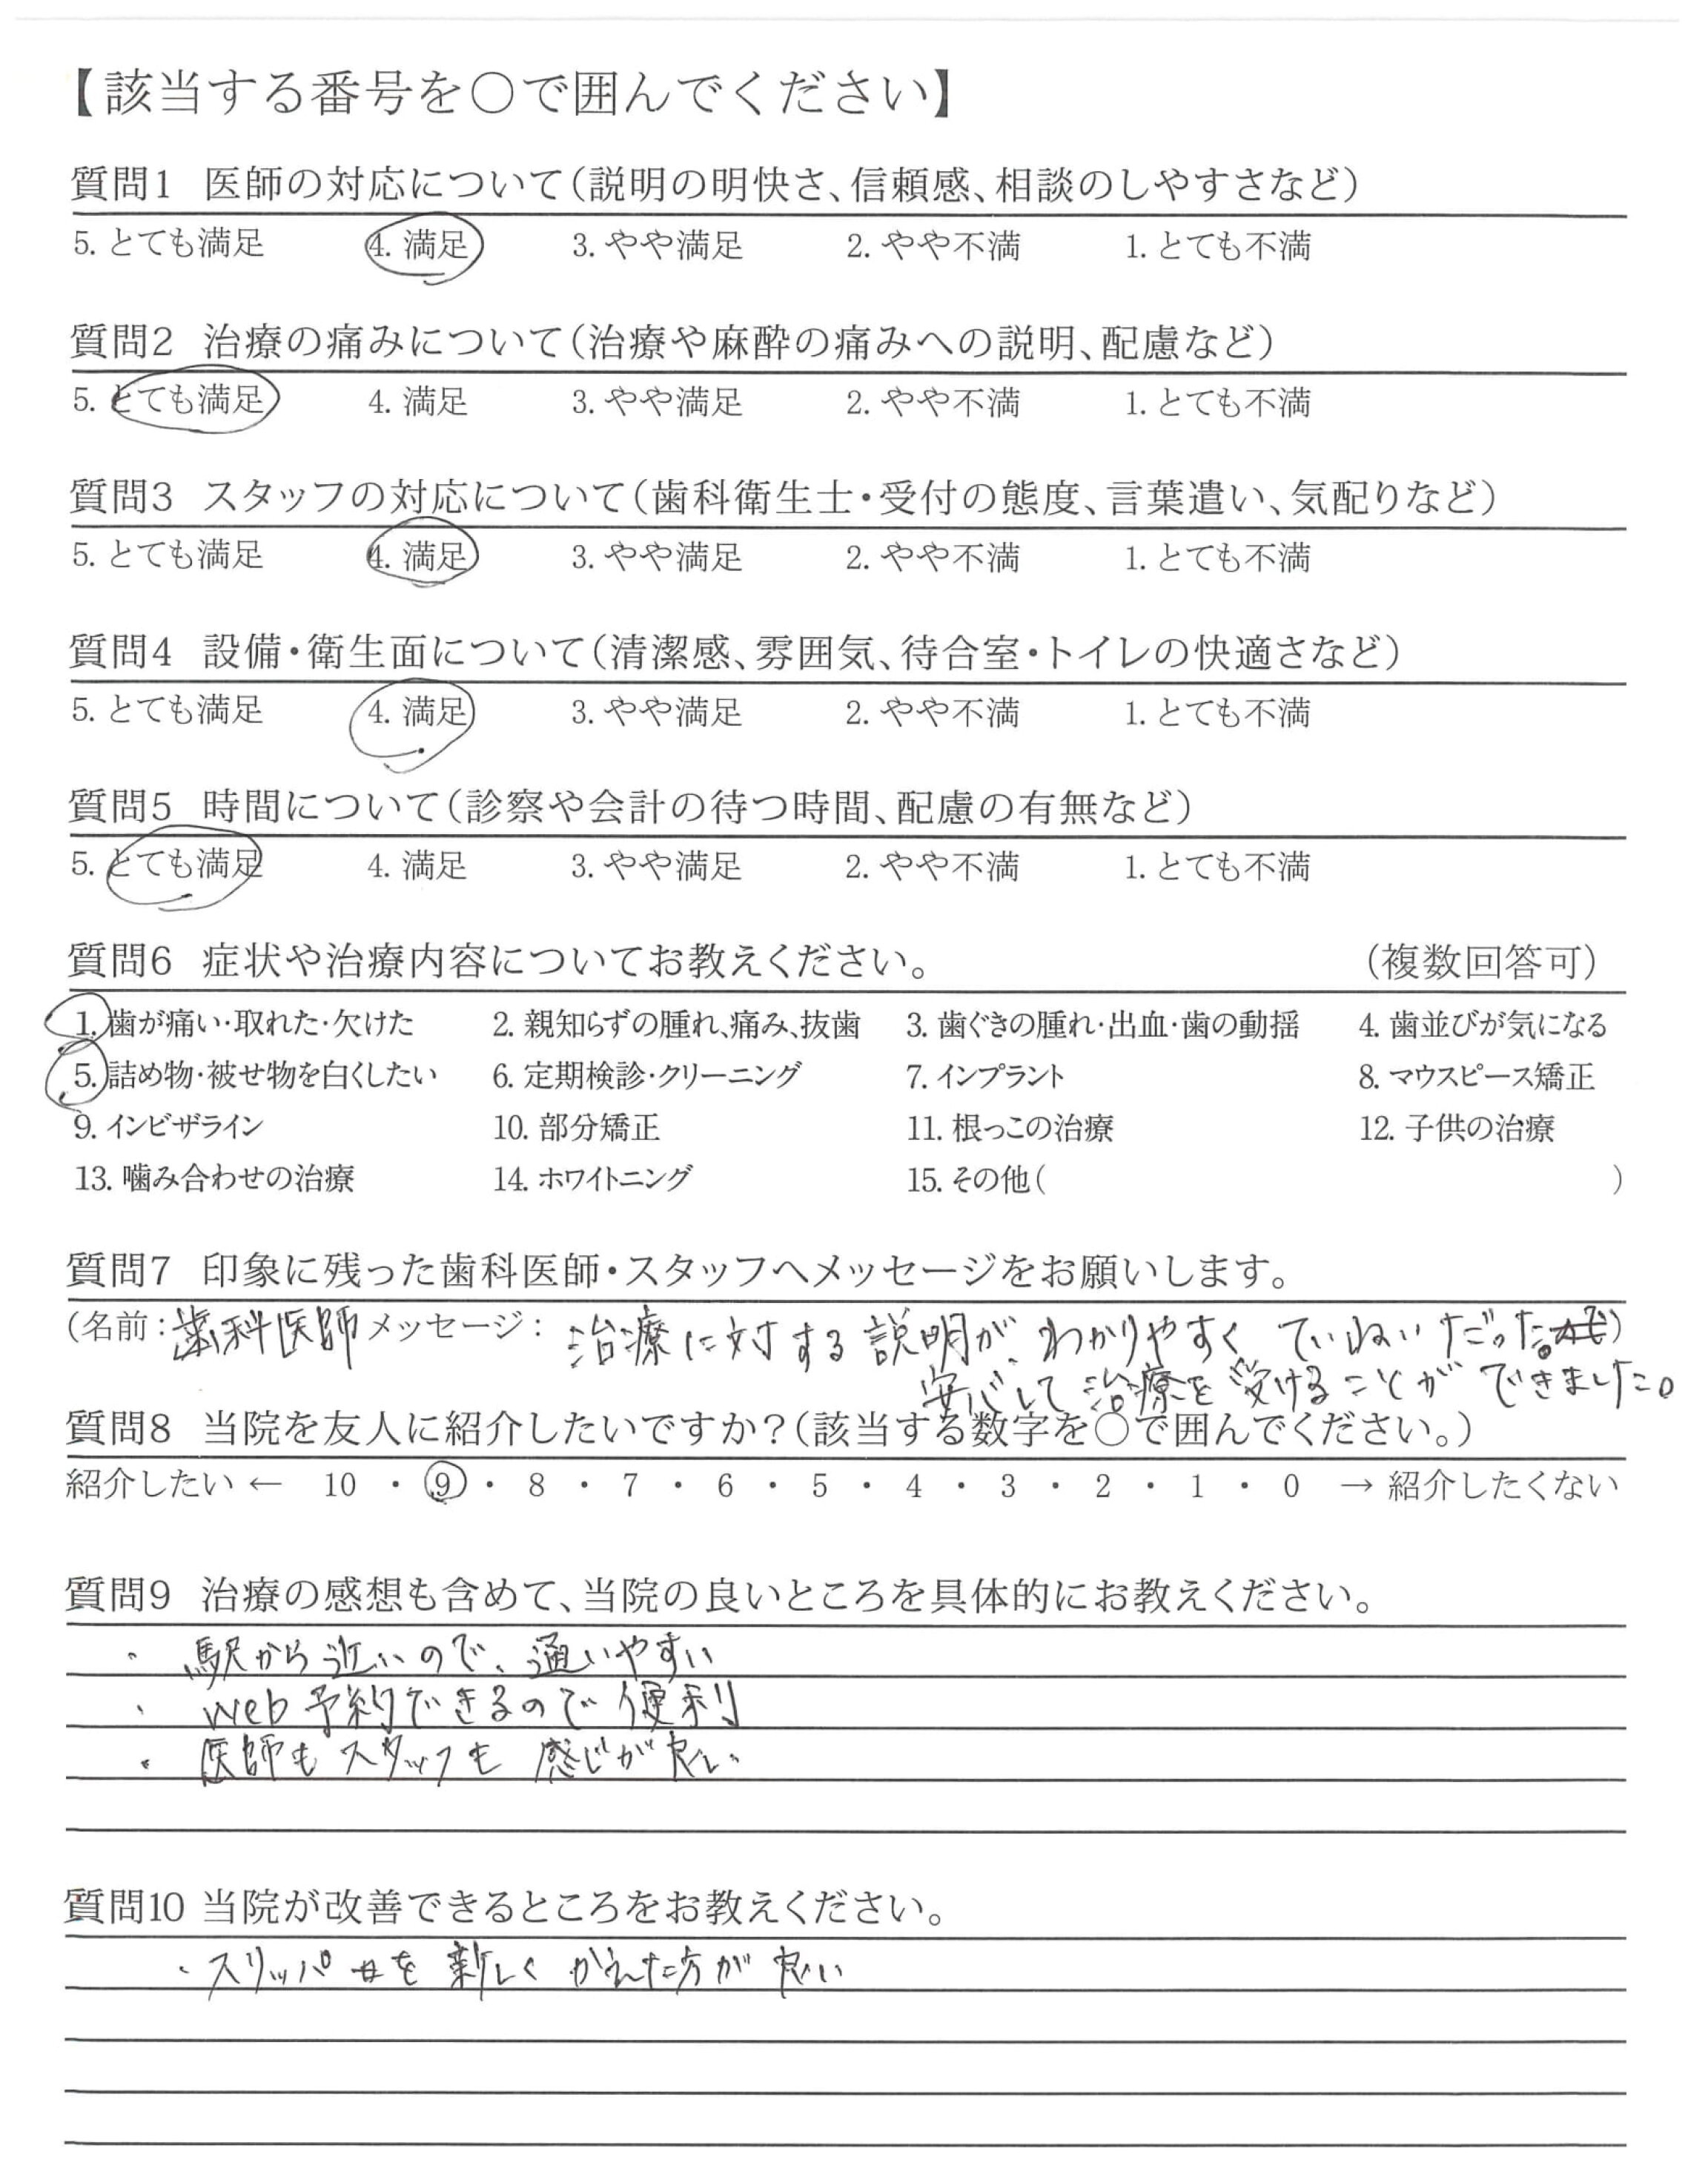 【該当する番号を○で囲んでください】
質問1 医師の対応について(説明の明快さ、信頼感、相談のしやすさなど)
5. とても満足 4. 満足 3. やや満足 2. やや不満 1. とても不満
質問2 治療の痛みについて(治療や麻酔の痛みへの説明、配慮など)
5. とても満足 4. 満足 3. やや満足 2. やや不満 1. とても不満
質問3 スタッフの対応について(歯科衛生士・受付の態度、言葉遣い、気配りなど)
5. とても満足 4. 満足 3. やや満足 2. やや不満 1. とても不満
質問4 設備・衛生面について(清潔感、雰囲気、待合室・トイレの快適さなど)
5. とても満足 4. 満足 3. やや満足 2. やや不満 1. とても不満
質問5 時間について(診察や会計の待つ時間、配慮の有無など)
5. とても満足 4. 満足 3. やや満足 2. やや不満 1. とても不満
質問6 症状や治療内容についてお教えください。 (複数回答可)
1. 歯が痛い・取れた・欠けた 2. 親知らずの腫れ、痛み、抜歯 3. 歯ぐきの腫れ・出血・歯の動揺 4. 歯並びが気になる
5. 詰め物・被せ物を白くしたい 6. 定期検診・クリーニング 7. インプラント 8. マウスピース矯正
9. インビザライン 10. 部分矯正 11. 根っこの治療 12. 子供の治療
13. 噛み合わせの治療 14. ホワイトニング 15. その他( )
質問7 印象に残った歯科医師・スタッフへメッセージをお願いします。
(名前：歯科医師 メッセージ： 治療に対する説明が、わかりやすく ていねいだった。)
安心して治療を受けることができました。
質問8 当院を友人に紹介したいですか？(該当する数字を○で囲んでください。)
紹介したい ← 10 ・ 9 ・ 8 ・ 7 ・ 6 ・ 5 ・ 4 ・ 3 ・ 2 ・ 1 ・ 0 → 紹介したくない
質問9 治療の感想も含めて、当院の良いところを具体的にお教えください。
・ 駅から近いので、通いやすい
・ web予約できるので便利
・ 医師もスタッフも 感じが良い
質問10 当院が改善できるところをお教えください。
・スリッパを新しくかえた方が良い